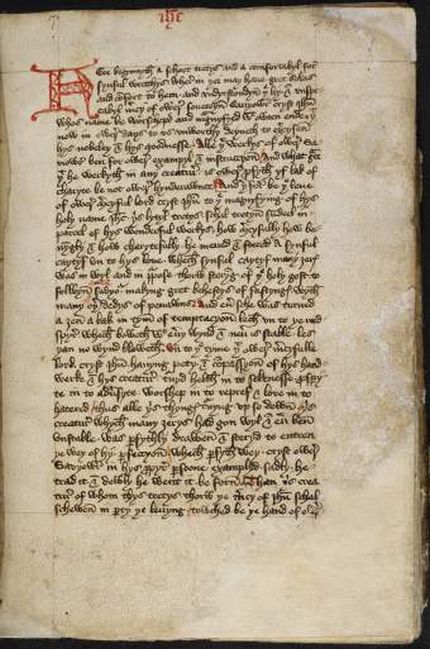 ihc
Here begynnyth a schort tretys and a comfortabyl for
synful wrecchys wher in þei may haue gret solas
and comfort to hem and vndyrstondyn þe hy & vnspe
cabyl mercy of ower souereyn Sauyowr cryst Ihesu
whos name be worschepd and magnyfyed wythowten ende þat
now in ower days to vs vnworthy deyneth to exercysen
hys nobeley & hys goodnesse. Alle þe werkys of ower Sa
viowr ben for ower exampyl & instruccyon and what grace
þat he werkyth in any creatur is ower profyth yf lak of
charyte be not ower hynderawnce. And þerfor be þe leue
of ower mercyful lord cryst Ihesu to þe magnyfying of hys
holy name Ihesu þis lytyl tretys schal tretyn sumdeel in
parcel of hys wonderful werkys. how mercyfully how be-
nyngly & how charytefully he meued & stered a synful
caytyf vn to hys loue. whech synful caytyf many ȝerys
was in wyl and in purpose thorw steryng of þe holy gost to
folwyn oure Savyowr. makyng gret behestys of fastyngys wyth
many oþer dedys of penawns. And euyr sche was turned
a ȝen a bak in tyme of temptacyon. lech vn to þe reed
spyr whech boweth wyth euery wynd & neuyr is stable les
þan no wynd bloweth. vn to þe tyme þat ower mercyfulle
lord cryst Ihesu hauyng pety & compassyon of hys hand-
werke & hys creatur turnyd helth in to sekenesse prosperyte
in to aduersyte. worshep in to repref & loue in to
hatered. thus alle þis thyngys turnyng vp so down þis
creatur whych many ȝerys had gon wyl & euyr ben
vnstable. was parfythly drawen & steryd to entren
þe wey of hy perfeccyon. whech parfyth wey cryst ower
Savyowr in hys propyr persoone examplyd. sadly he
trad it & dewly he went it be forn. Than þis crea
tur of whom thys tretys thorw þe mercy of Ihesu schal
schewen in party þe leuyng. towched be þe hand of owyr